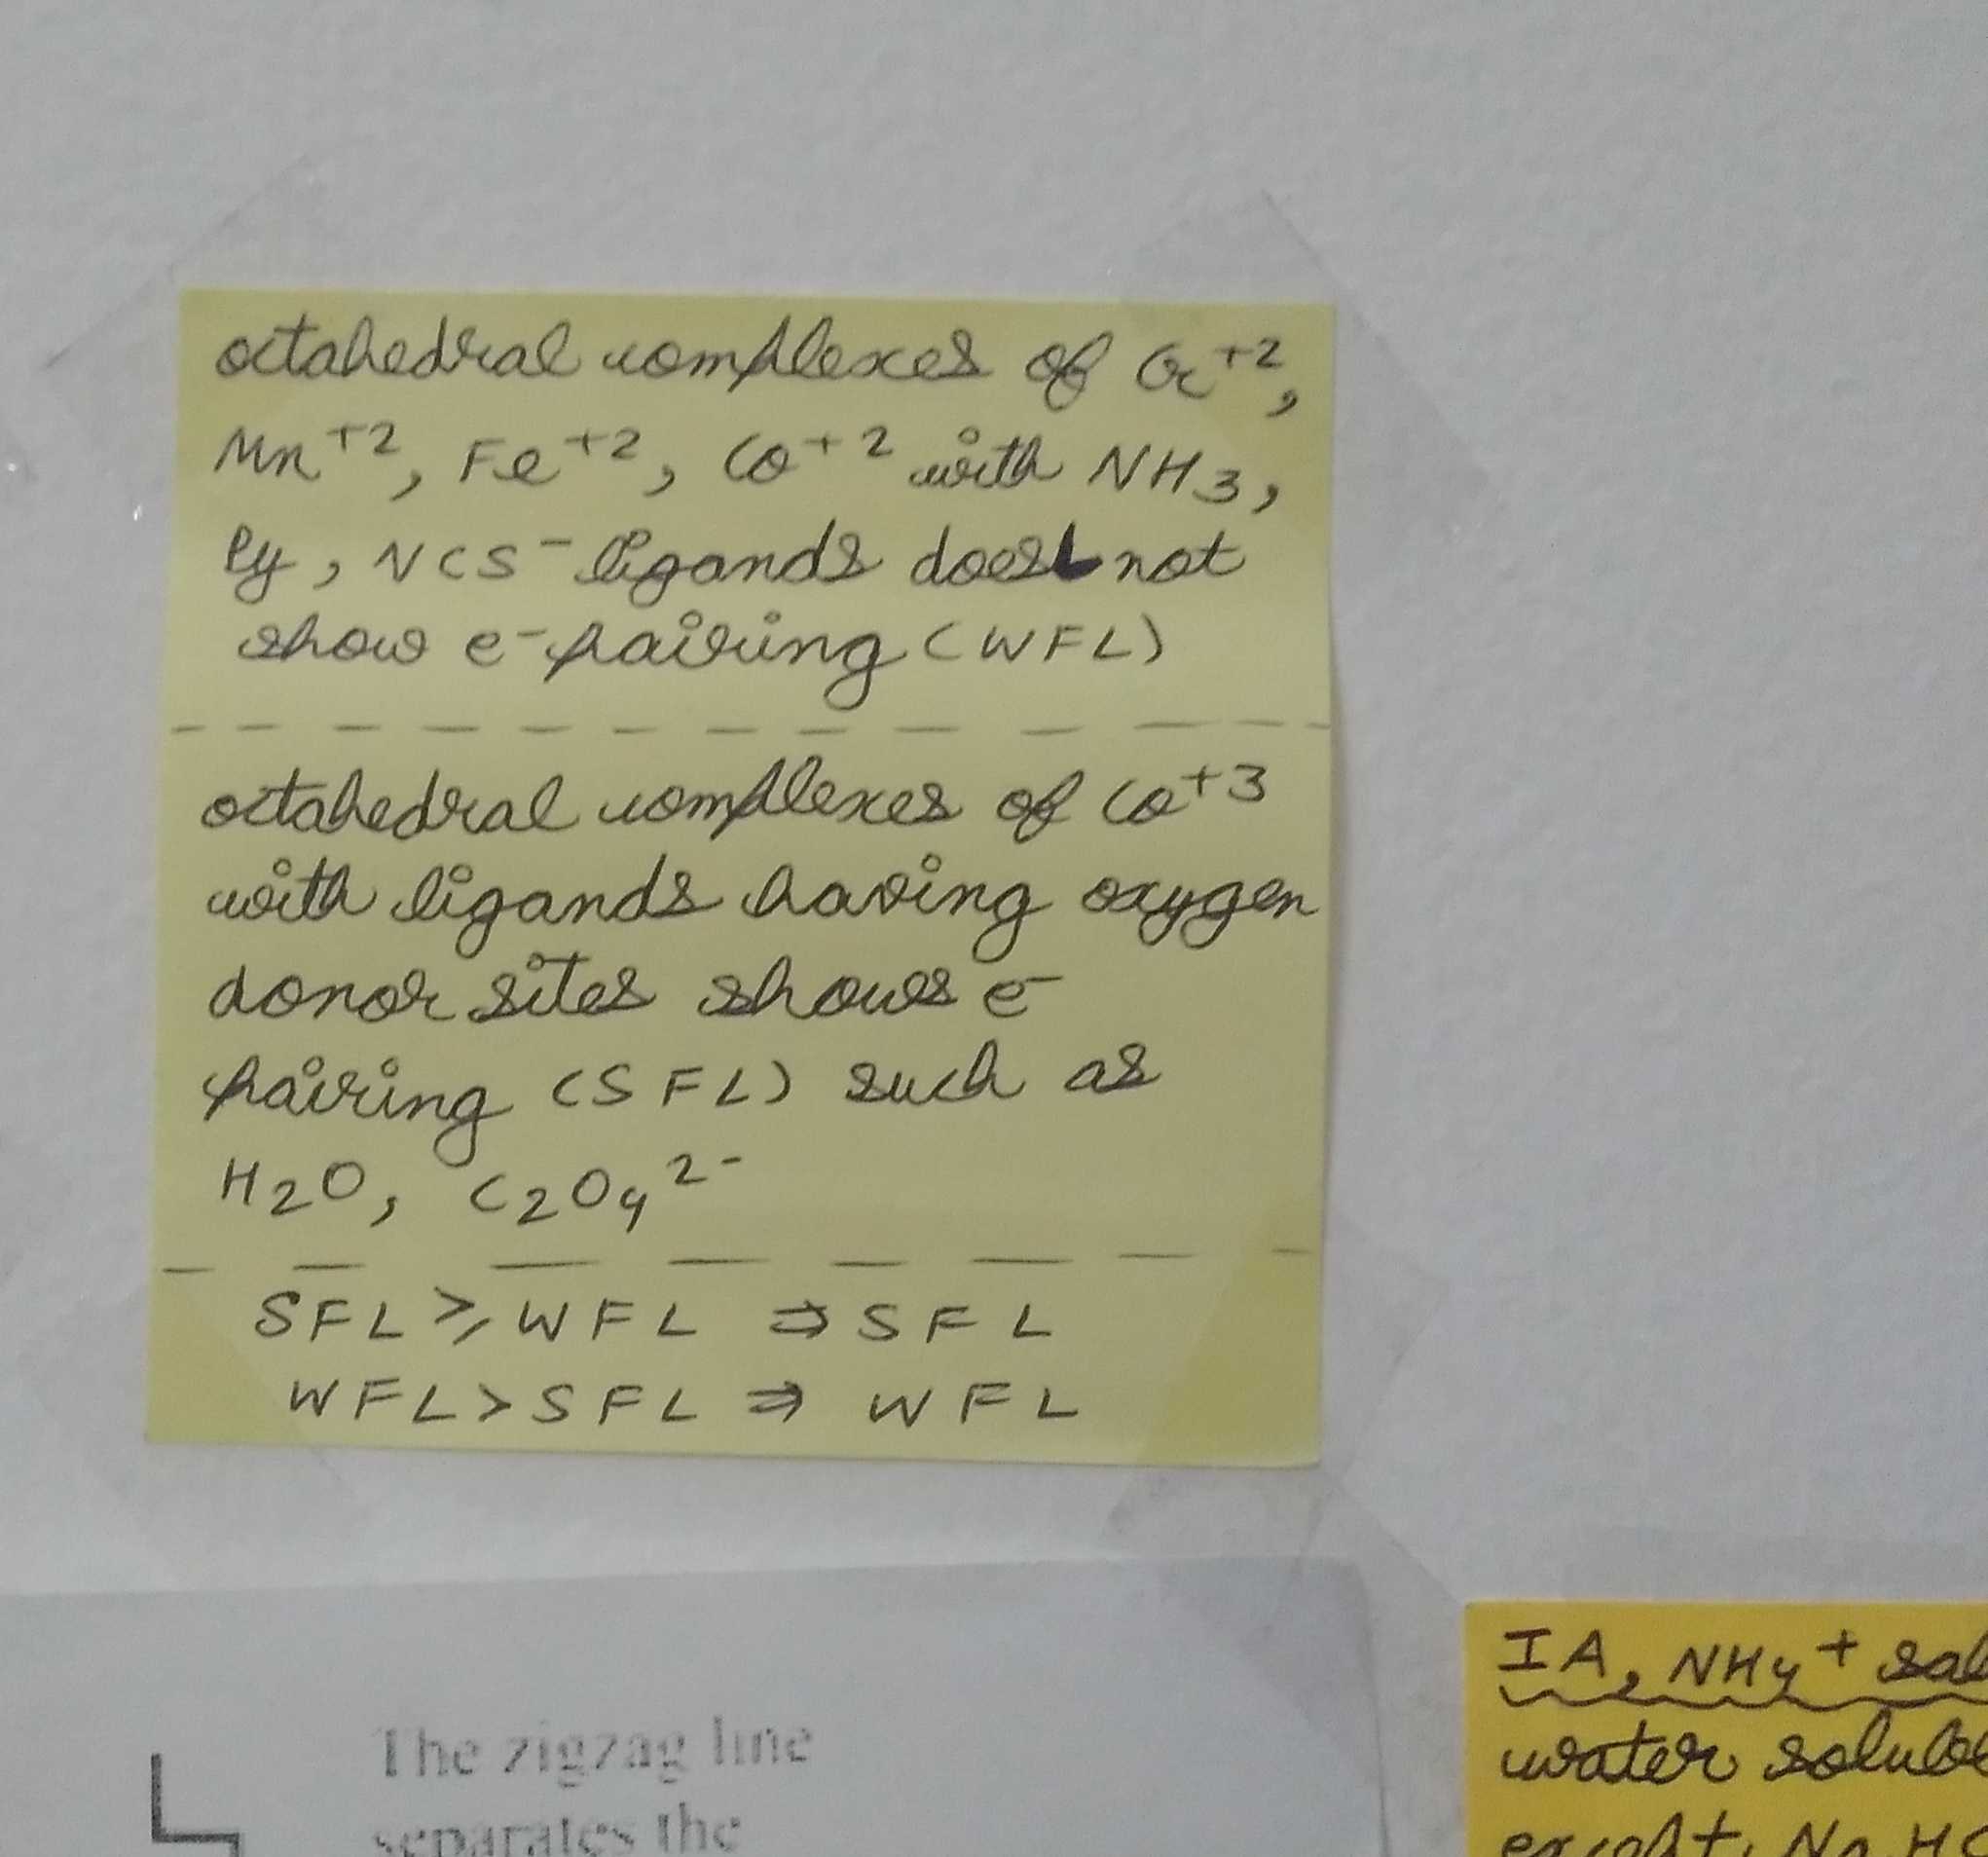 octahedral complexes of Cr+2,
Mn+2, Fe+2, Co+2 with NH3,
Py, NCS- ligands does not
show e- pairing (WFL)
octahedral complexes of Co+3
with ligands having oxygen
donor sites shows e-
pairing (SFL) such as
H2O, C2O4 2-
SFL ≥ WFL ⇒ SFL
WFL > SFL ⇒ WFL
The zigzag line
separates the
IA, NH4+ sal
water soluble
except, Na HC